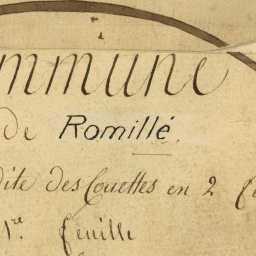 ommune
de Romillé.
dite des Couettes en 2
1re feuille